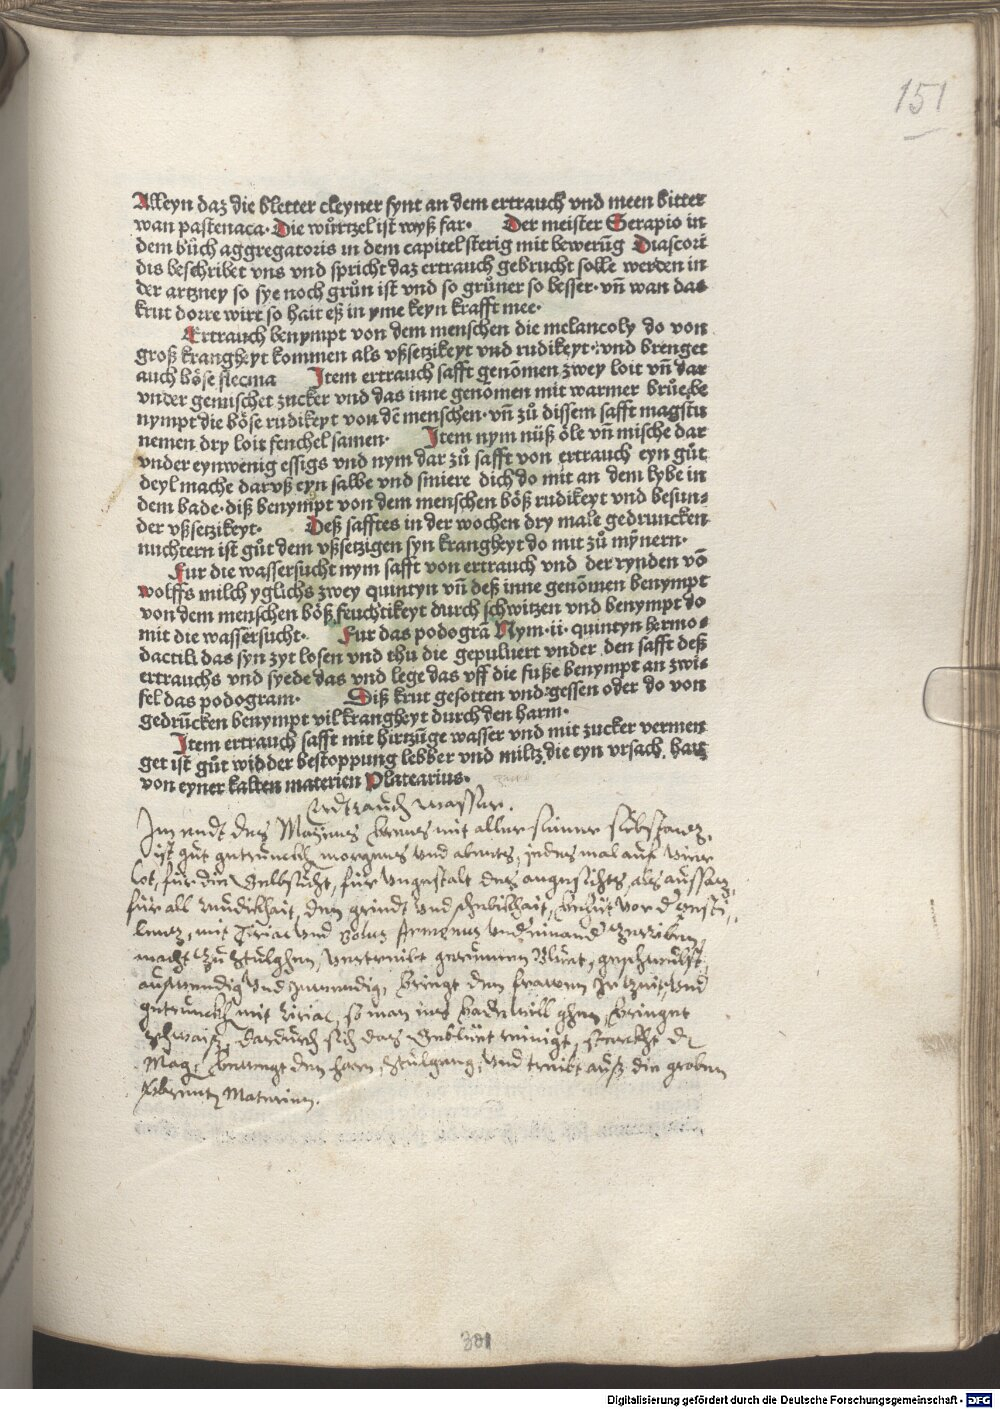 151
Alleyn daz die bletter cleyner synt an dem ertrauch vnd meen bitter
wan pastenaca· Die wůrtzel ist wyß far· Der meister Serapio in
dem bůch aggregatoris in dem capitel sterig mit bewerūg Diascori
dis beschribet vns vnd spricht daz ertrauch gebrucht solle werden in
der artzney so sye noch grůn ist vnd so grůner so besser· vn̄ wan das
krut dorre wirt so hait eß in yme keyn krafft mee·
Ertrauch benympt von dem menschen die melancoly do von
groß krangheyt kommen als vßsetzikeyt vnd rudikeyt· vnd brenget
auch böse flecma Item ertrauch safft genōmen zwey loit vn̄ dar
vnder gemischet zucker vnd das inne genomen mit warmer brůe be
nympt die böse rudikeyt von dē menschen· vn̄ zů dissem safft magstu
nemen dry loit fenchel samen· Item nym nüß öle vn̄ mische dar
vnder eyn wenig essigs vnd nym dar zů safft von ertrauch eyn gůt
deyl mache dar vß eyn salbe vnd smiere dich do mit an dem lybe in
dem bade· diß benympt von dem menschen böß rudikeyt vnd besun-
der vßsetzikeyt· Deß safftes in der wochen dry male gedruncken
nuchtern ist gůt dem vßsetzigen syn krangheyt do mit zů mȳnern·
Fur die wassersucht nym safft von ertrauch vnd der rynden vō
wolffs milch yglichs zwey quintyn vn̄ deß inne genōmen benympt
von dem menschen böß feuchtikeyt durch schwitzen vnd benympt do
mit die wassersucht· Fur das podogrā Nym·ii· quintyn hermo-
dactili das syn zyt losen vnd thu die gepuluert vnder den safft deß
ertrauchs vnd syede das vnd lege das vff die fuße benympt an zwi-
fel das podogram· Diß krut gesotten vnd gessen oder do von
gedrūcken benympt vil krangheyt durch den harm·
Item ertrauch safft mit hirtzūge wasser vnd mit zucker vermen
get ist gůt widder bestoppung lebber vnd miltz die eyn vrsach hait
von eyner kalten materien Platearius·
Erdtrauch wasser.
Im endt des Mayens brens mit aller seiner substantz,
ist gut getrunckh morgens vnd abents, iedes mal auf vier
lot, für die Gelbsucht, für vngestalt des angesichts, als aussatz,
für all reudikhait, den grindt vnd schebikhait, behüt vor d pesti,
lentz, mit Tiriac vnd Bolus Armenus vnd einand zertriben,
macht zu stulghen, vertreibt geruнnen Bluet, geschwulst
auswendig vnd Innwendig, bringt den frawen Ir Zeit, vnd
getrunckh mit tiriac, so man ins bad will ghen, bringet
schwaiß, dardurch sich das Geblüet reinigt, sterckht den
Mag, bewegt den Harn, stulgang, vnd treibt auß die groben
verbrenten Materien.
301
Digitalisierung gefördert durch die Deutsche Forschungsgemeinschaft - DFG